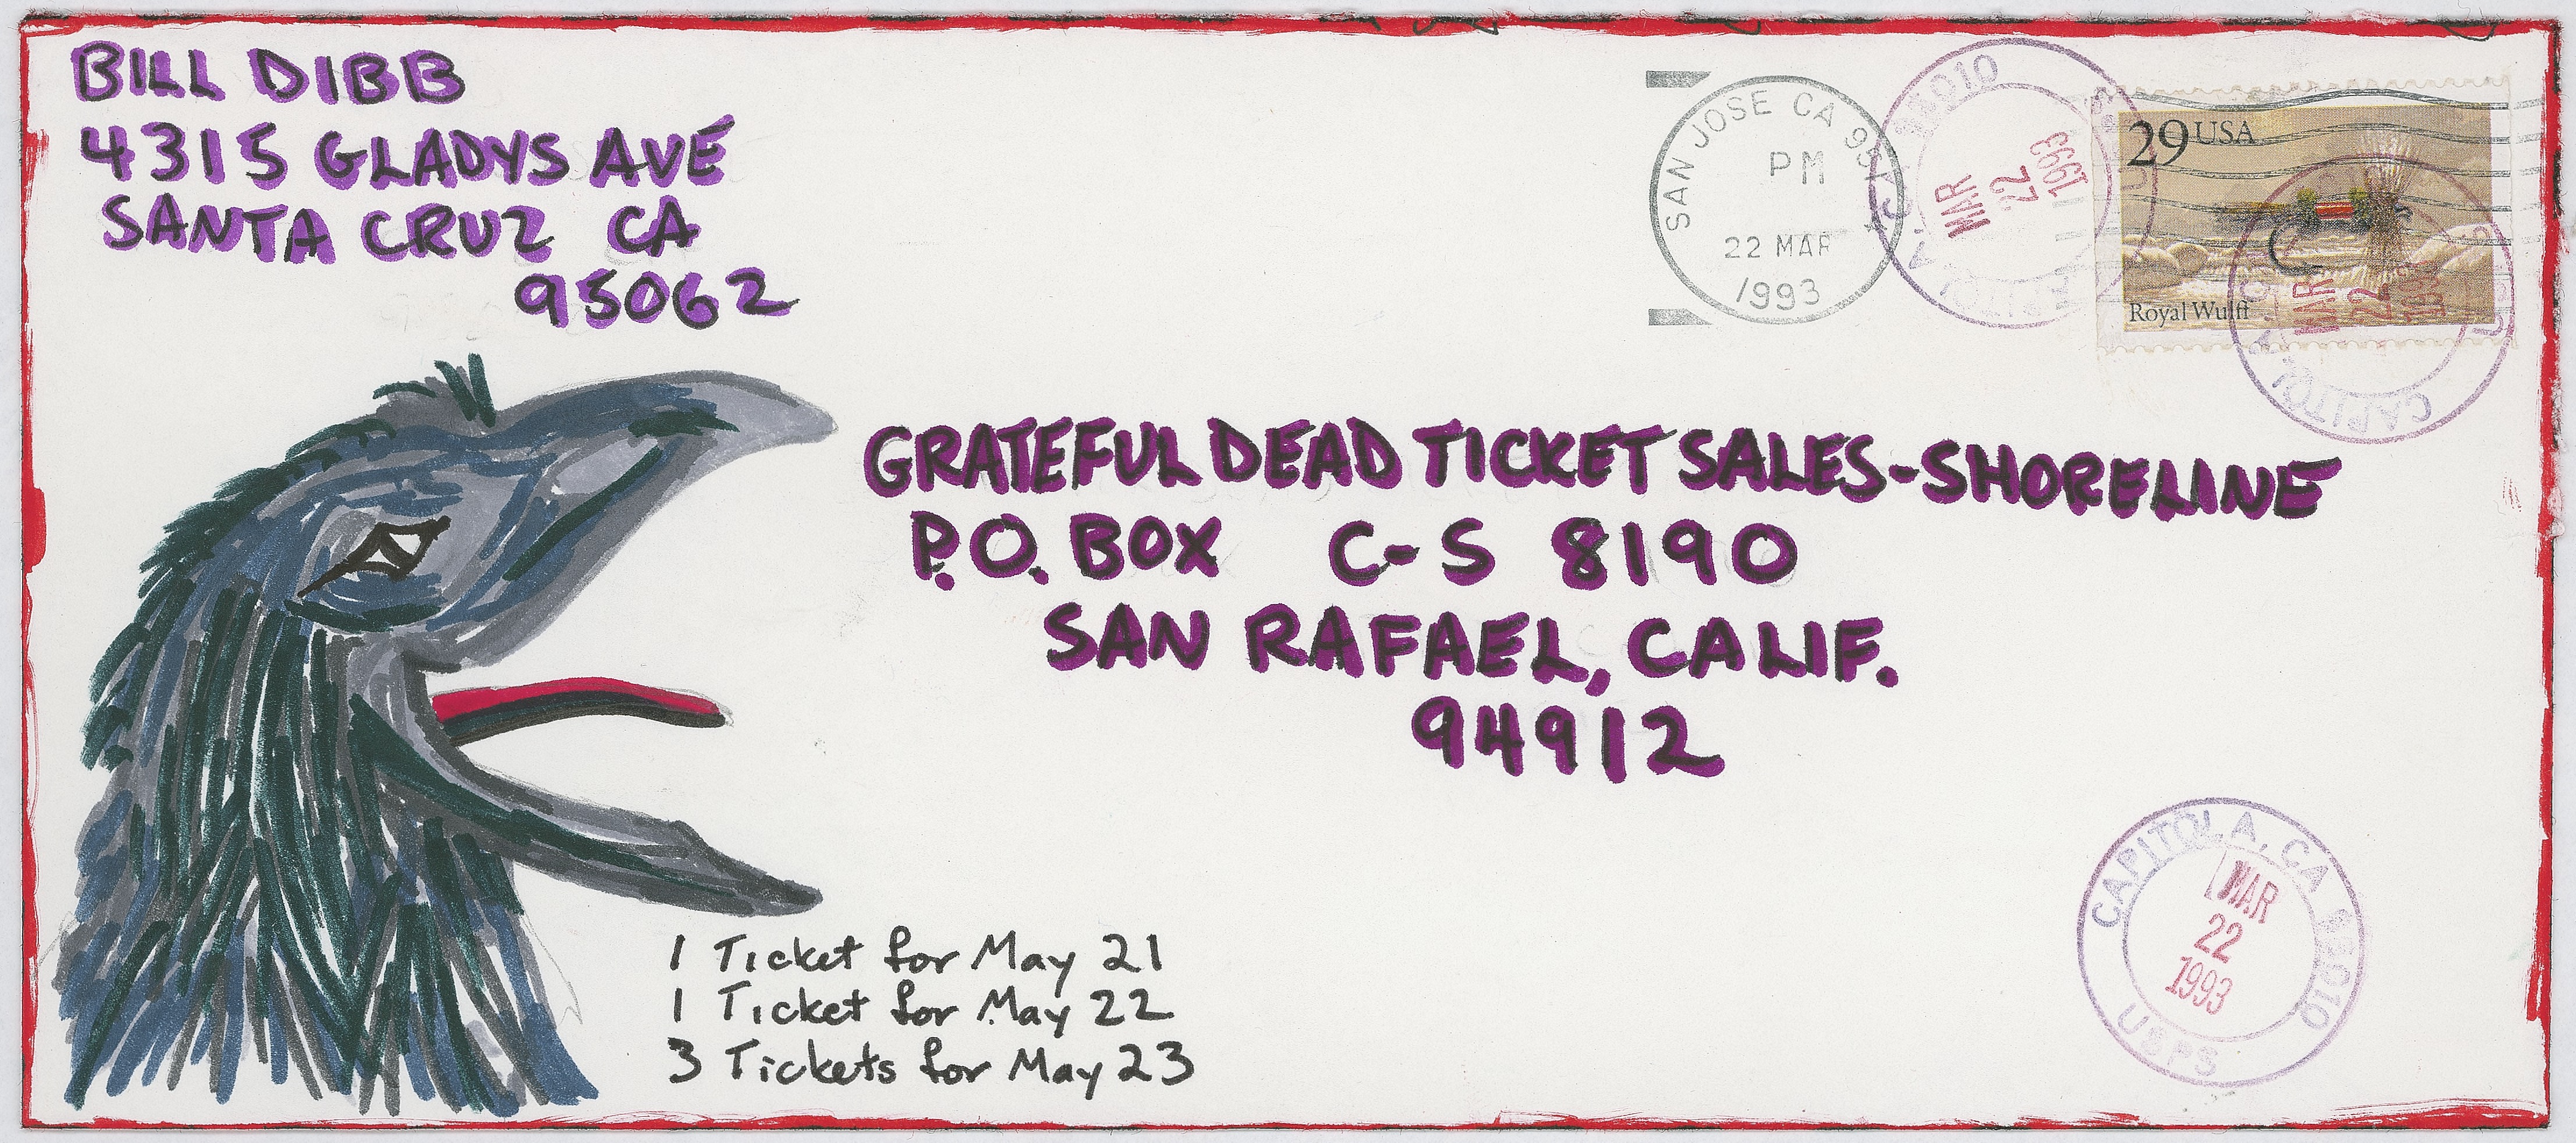 BILL DIBB
4315 GLADYS AVE
SANTA CRUZ CA
95062
SAN JOSE CA 951
PM
22 MAR
1993
CAPITOLA, CA 95010
MAR
22
1993
29 USA
Royal Wulff
CAPITOLA, CA
USPS
MAR
22
1993
GRATEFUL DEAD TICKET SALES-SHORELINE
P.O. BOX C-S 8190
SAN RAFAEL, CALIF.
94912
1 Ticket for May 21
1 Ticket for May 22
3 Tickets for May 23
CAPITOLA, CA 95010
MAR
22
1993
USPS